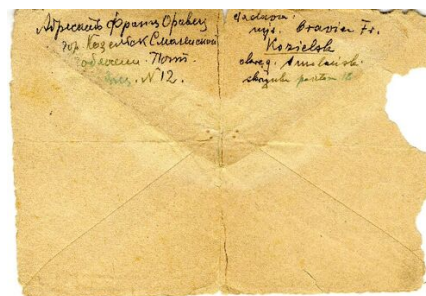 Адресатъ Франц Оравец
гор. Козельск Смоленской
области. Почт.
ящ. N 12.
Nadawca.
Fr.
Kozielsk
okręg. Smoleński
skrzynka poczt. 12